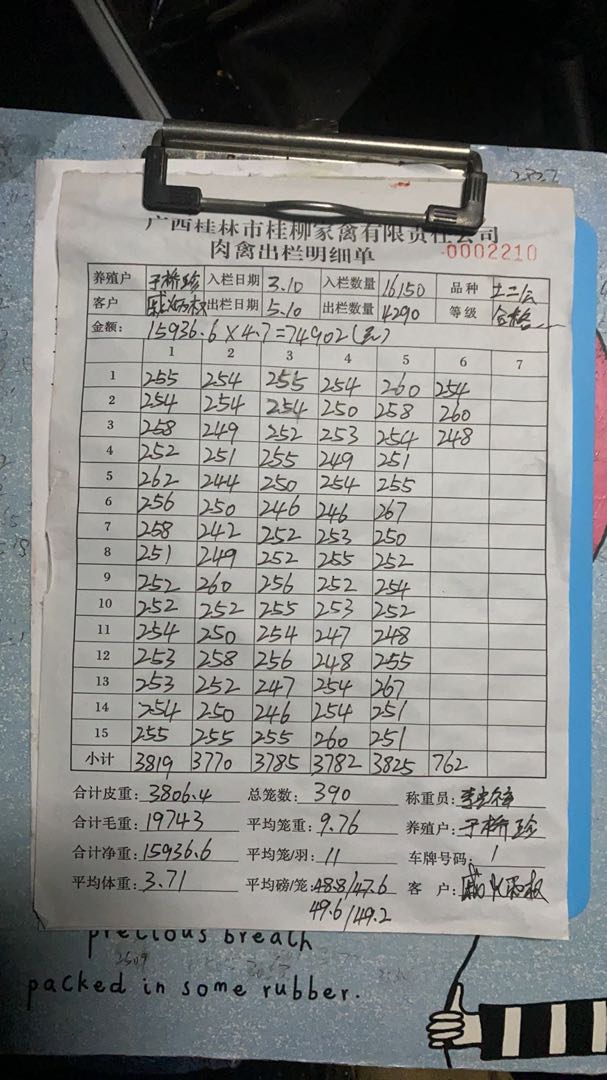 广西桂林市桂柳家禽有限责任公司
肉禽出栏明细单 0002210
养殖户 于桥珍 入栏日期 3.10 入栏数量 16150 品种 土二公
客户 出栏日期 5.10 出栏数量 4290 等级 合格
金额: 15936.6×4.7=74902(元)
1 2 3 4 5 6 7
1 255 254 255 254 260 254
2 254 254 254 250 258 260
3 258 249 252 253 254 248
4 252 251 255 249 251
5 262 244 250 254 255
6 256 250 246 246 267
7 258 242 252 253 250
8 251 249 252 255 252
9 252 260 256 252 254
10 252 252 255 253 252
11 254 250 254 247 248
12 253 258 256 248 255
13 253 252 247 254 267
14 254 250 246 254 251
15 255 255 255 260 251
小计 3819 3770 3785 3782 3825 762
合计皮重: 3806.4 总笼数: 390 称重员:
合计毛重: 19743 平均笼重: 9.76 养殖户: 于桥珍
合计净重: 15936.6 平均笼/羽: 11 车牌号码: 1
平均体重: 3.71 平均磅/笼: 48.8/47.6 客 户:
49.6/49.2
precious breath
packed in some rubber.